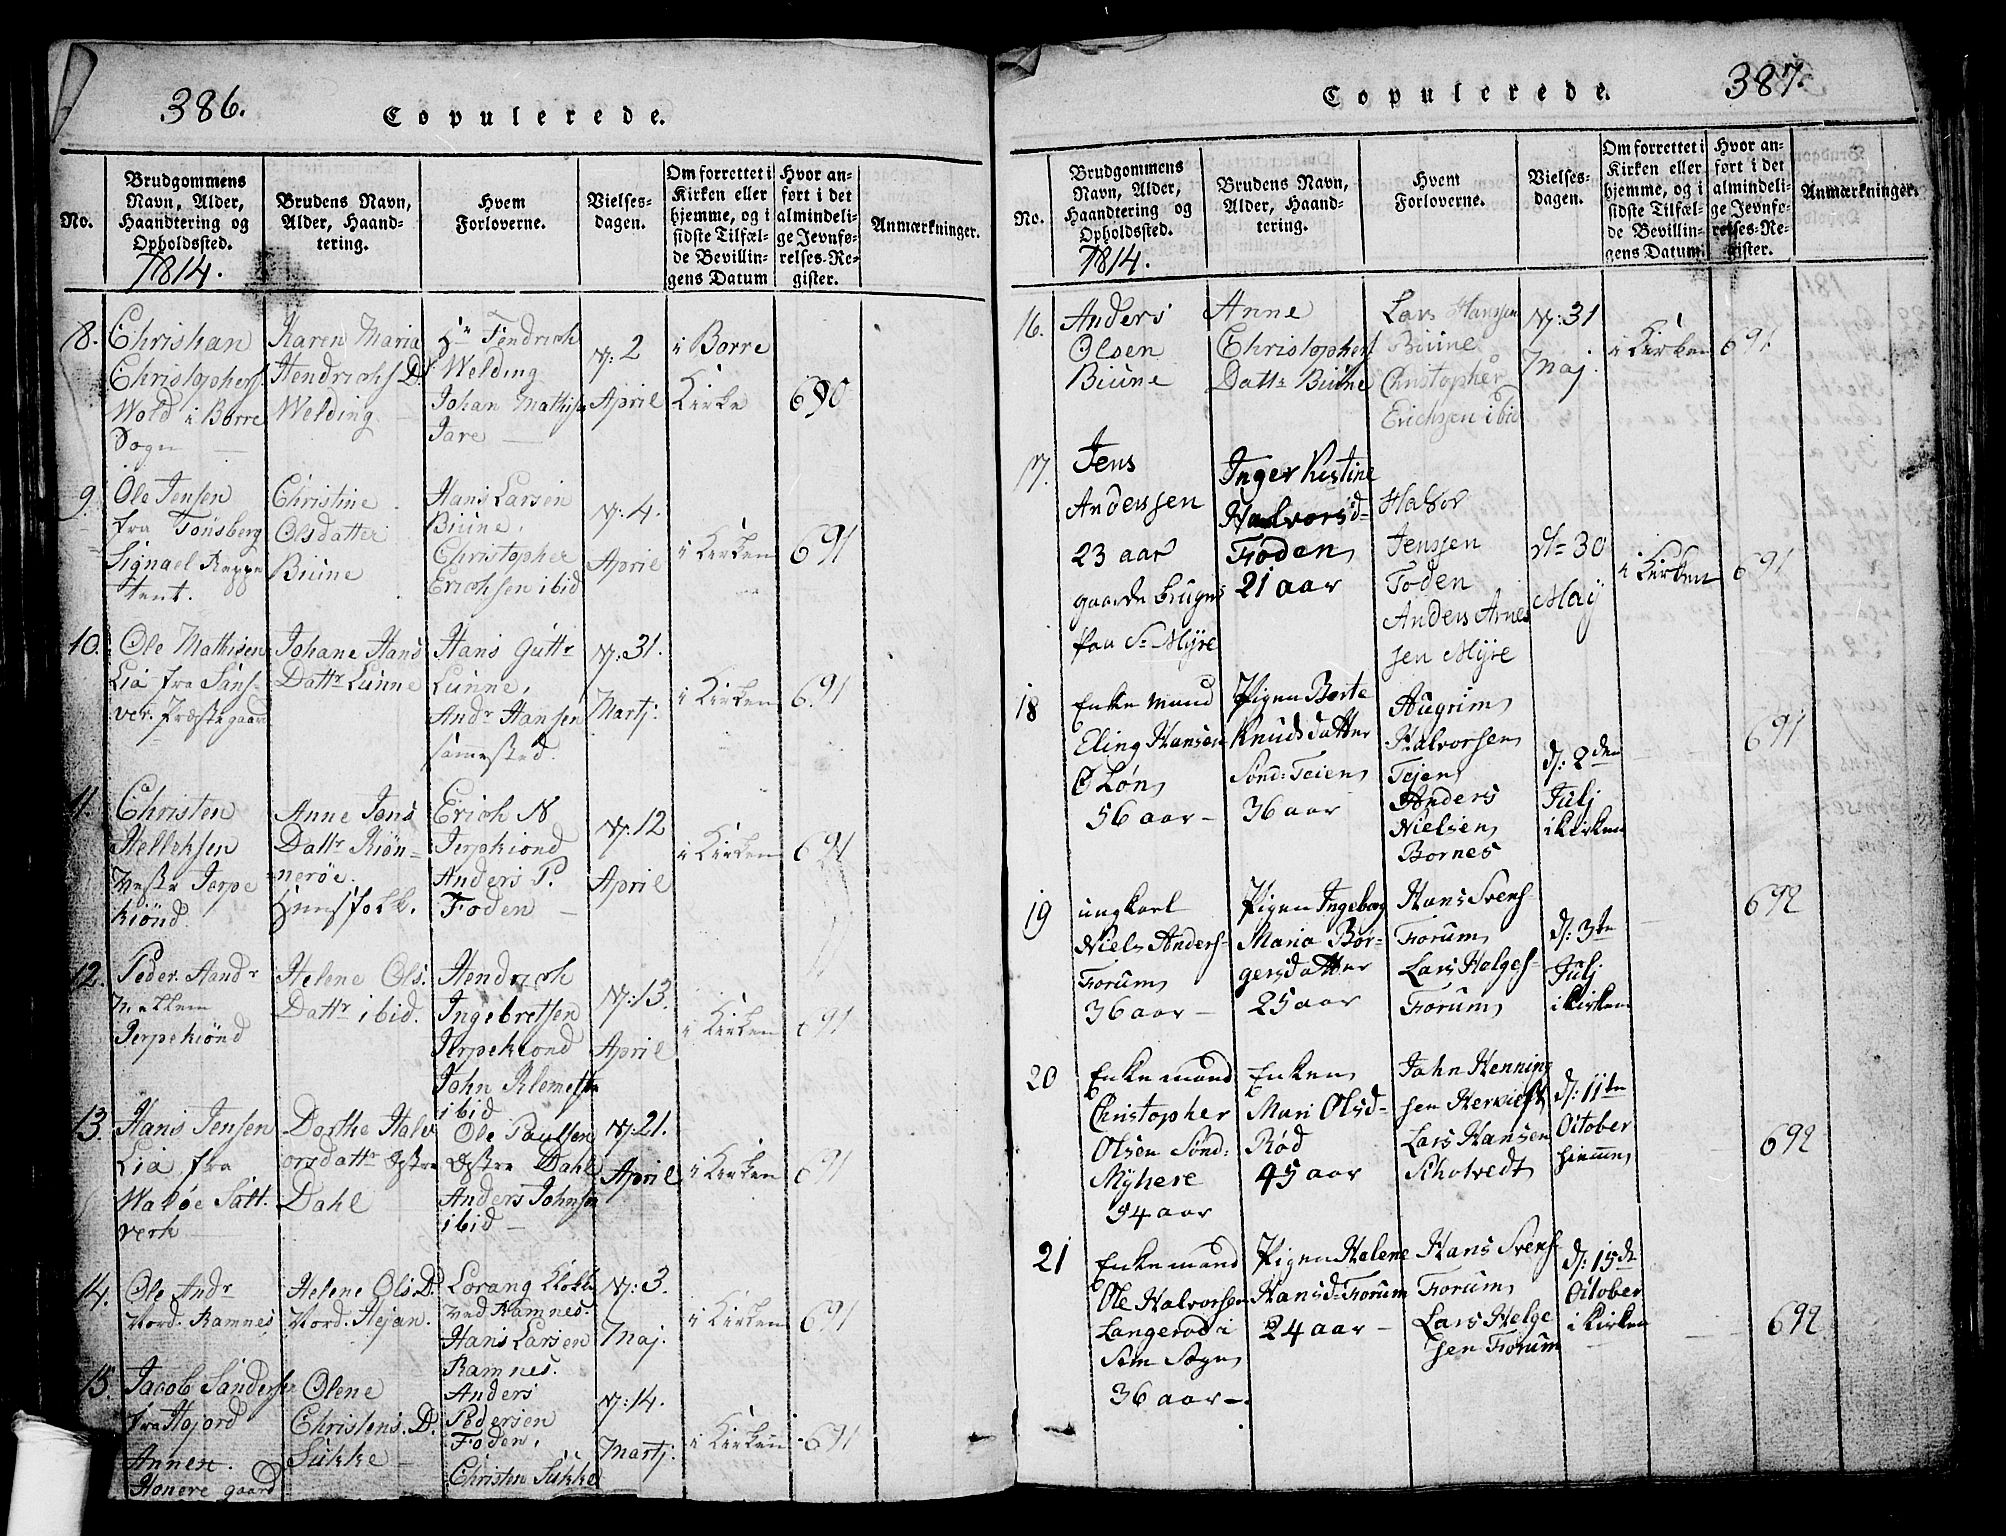 386.
Copulerede.
No.
Brudgommens
Navn, Alder,
Haandtering og
Opholdssted.
1814.
Brudens Navn,
Alder, Haand-
tering.
Hvem
Forloverne.
Vielses-
dagen.
Om forrettet i
Kirken eller
hjemme, og i
sidste Tilfæl-
de Bevillin-
gens Datum
Hvor an-
ført i det
almindeli-
ge Jevnfø-
relses-Re-
gister.
Anmærkninger.
8.
Christian
Christophers
Wold i Borre
Sogn
Karen Maria
Hendrichs D
Welding
Hr Fendrich
Welding
Johan Mathisen
Jare
d: 2
April
i Borre
Kirke
690
9.
Ole Jensen
fra Tønsberg
Signael Reppe
tent.
Christine
Olsdatter
Biüne
Hans Larsen
Biüne,
Christopher
Erichsen ibid
d: 4.
April
i Kirken
691
10.
Ole Mathisen
Lia fra Sans-
ver. Præstegaard
Johane Hans
Dattr Lünne
Hans Guttr
Lünne,
Andr Hansen
sammested.
d: 31.
Martj.
i Kirken
691
11.
Christen
Helleksen
Vestr Jerpe
kiönd.
Anne Jens
Dattr Kiön-
neröe.
Huusfolk.
Erich N
Jerpekiond
Anders P.
Foden
d: 12
April
i Kirken
691
12.
Peder Handr
Mellem
Jerpekiönd
Helene Ols.
Dattr ibid.
Hendrich
Ingebretsen
Jerpekiond
John Klemetsen
ibid
d: 13.
April
i Kirken
691
13.
Hans Jensen
Lia fra
Waløe Salt.
verk
Dorthe Halv
orsdattr østre
Dahl
Ole Paulsen
østre Dahl
Anders Johnsen
ibid
d: 21.
April
i Kirken
691
14.
Ole Andr
Nord. Ramnes
Helene Ols. D.
Nord. Hejan.
Lorang Klokker
ved Ramnes.
Hans Larsen
Ramnes.
d: 3.
Maj.
i Kirken
691
15.
Jacob Sanderse
fra Hojord
Annex.
Honere gaard
Olene
Christens. D.
Sukke
Anders
Pedersen
Foden,
Christen Sukke
d: 14.
Martj.
i Kirken
691
387.
Copulerede.
No.
Brudgommens
Navn, Alder,
Haandtering og
Opholdssted.
1814.
Brudens Navn,
Alder, Haand-
tering.
Hvem
Forloverne.
Vielses-
dagen.
Om forrettet i
Kirken eller
hjemme, og i
sidste Tilfæl-
de Bevillin-
gens Datum.
Hvor an-
ført i det
almindeli-
ge Jevnfø-
relses-Re-
gister.
Anmærkninger.
16.
Anders
Olsen
Biüne
Anne
Christophers
Dattr Biüne
Lars Hanssen
Biüne
Christopher
Erichsen ibid
d: 31
Maj.
i Kirken
691
17.
Jens
Anderssen
23 aar
gaardebruger
paa S. Myre
Inger Kistine
Halvorsd-
Foden
21 aar
Halvor
Jenssen
Foden
Anders Arnes
sen Myre
d= 30
May
i Kirken
691
18
Enkemand
Eling Hansen
Ø Løn
56 aar
Pigen Berte
Knudsdatter
Sønd: Teien
36 aar
Augrim
Halvorsen
Tejen
Anders
Nielsen
Bornes
d: 2den
Julj
i Kirken
691
19
ungkarl
Niels Anders-
Forum
36 aar
Pigen Ingeborg
Maria Bør-
gersdatter
25 aar
Hans Svens-
Forum
Lars Helges-
Forum
d: 3te
Julj
i Kirken
692
20
Enkemand
Christopher
Olsen Sønd:
Myhere
54 aar
Enken
Mari Olsd-
Rød
45 aar
John Henning
sen
Lars Hansen
Schotvedt
d: 11te
October
hiemme
692
21
Enkemand
Ole Halvorsen
Langerod i
Sem Sogn
36 aar
Pigen Helene
Hansd= Forum
24 aar
Hans Svens-
Forum
Lars Helge
sen Forum
d: 15de
October
i Kirken
692